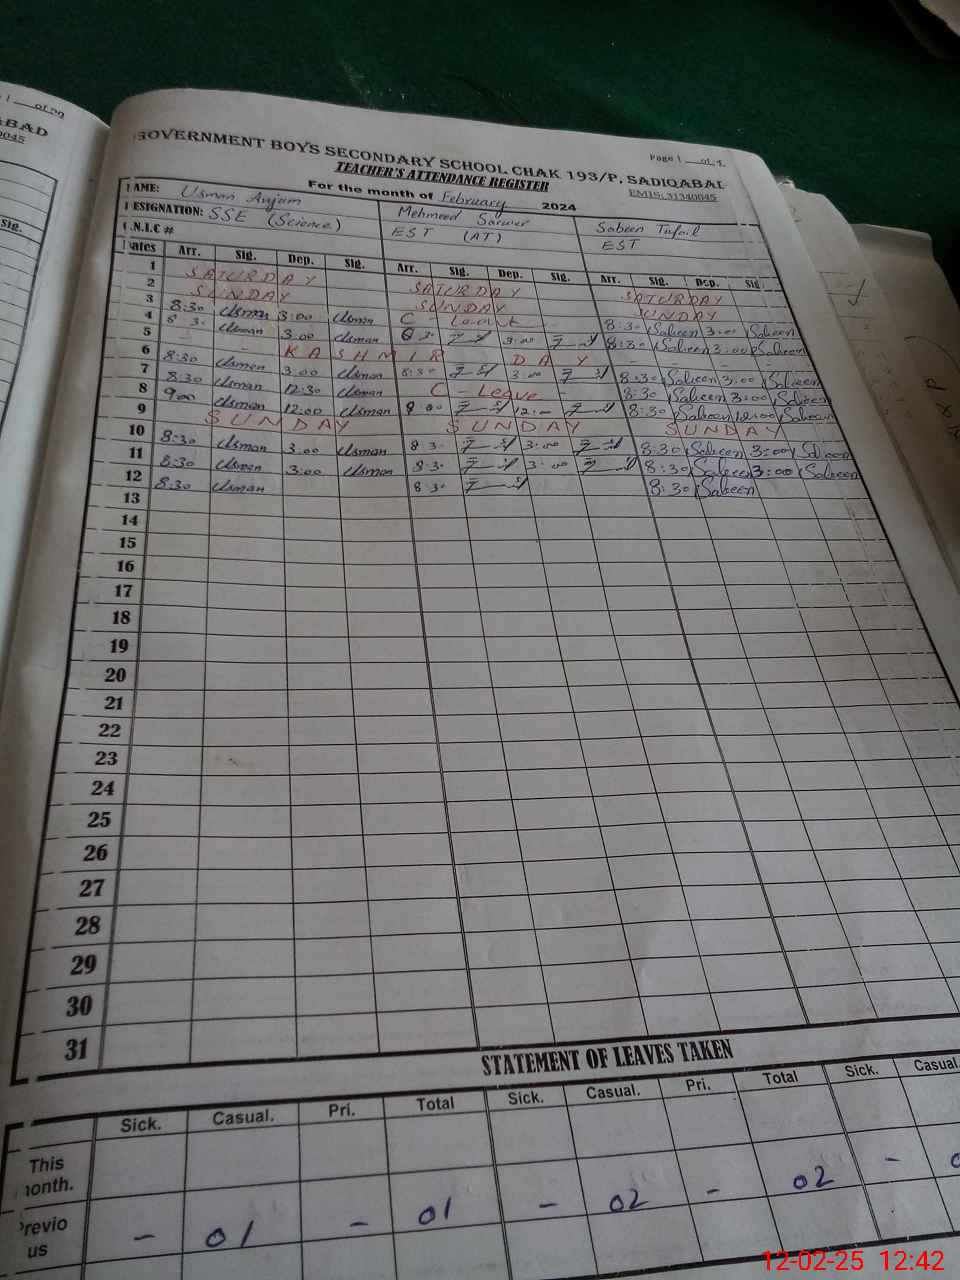 GOVERNMENT BOYS SECONDARY SCHOOL CHAK 193/P, SADIQABAD
Page 1 ___ of
TEACHER'S ATTENDANCE REGISTER
EMIS: 31340045
For the month of February 2024
NAME: Usman Anjum Mehmeed Sarwer Sabeen Tufail
DESIGNATION: SSE (Science) EST (AT) EST
C.N.I.C #
Dates Arr. Sig. Dep. Sig. Arr. Sig. Dep. Sig. Arr. Sig. Dep. Sig.
1 SATURDAY SATURDAY SATURDAY
2 SUNDAY SUNDAY SUNDAY
3 8:30 Usman 3:00 Usman C - Leave - 8:30 Sabeen 3:00 Sabeen
4 8 3. Usman 3.00 Usman 8 3. 3:00 8:30 Sabeen 3:00 Sabeen
5 - - KASHMIR DAY - - -
6 8:30 Usman 3.00 Usman 8:30 3:00 8:30 Sabeen 3:00 Sabeen
7 8:30 Usman 12:30 Usman C - Leave - 8:30 Sabeen 3:00 Sabeen
8 9:00 Usman 12:00 Usman 12:- 8:30 Sabeen 12:00 Sabeen
9 SUNDAY SUNDAY SUNDAY
10 8:30 Usman 3.00 Usman 8 3. 3:00 8:30 Sabeen 3:00 Sabeen
11 8:30 Usman 3:00 Usman 8:3. 3:00 8:30 Sabeen 3:00 Sabeen
12 8:30 Usman 8:3. 8:30 Sabeen
13
14
15
16
17
18
19
20
21
22
23
24
25
26
27
28
29
30
31
STATEMENT OF LEAVES TAKEN
Sick. Casual. Pri. Total Sick. Casual. Pri. Total Sick. Casual.
This
month.
Previo
us
- 01 - 01 - 02 - 02 -
12-02-25 12:42